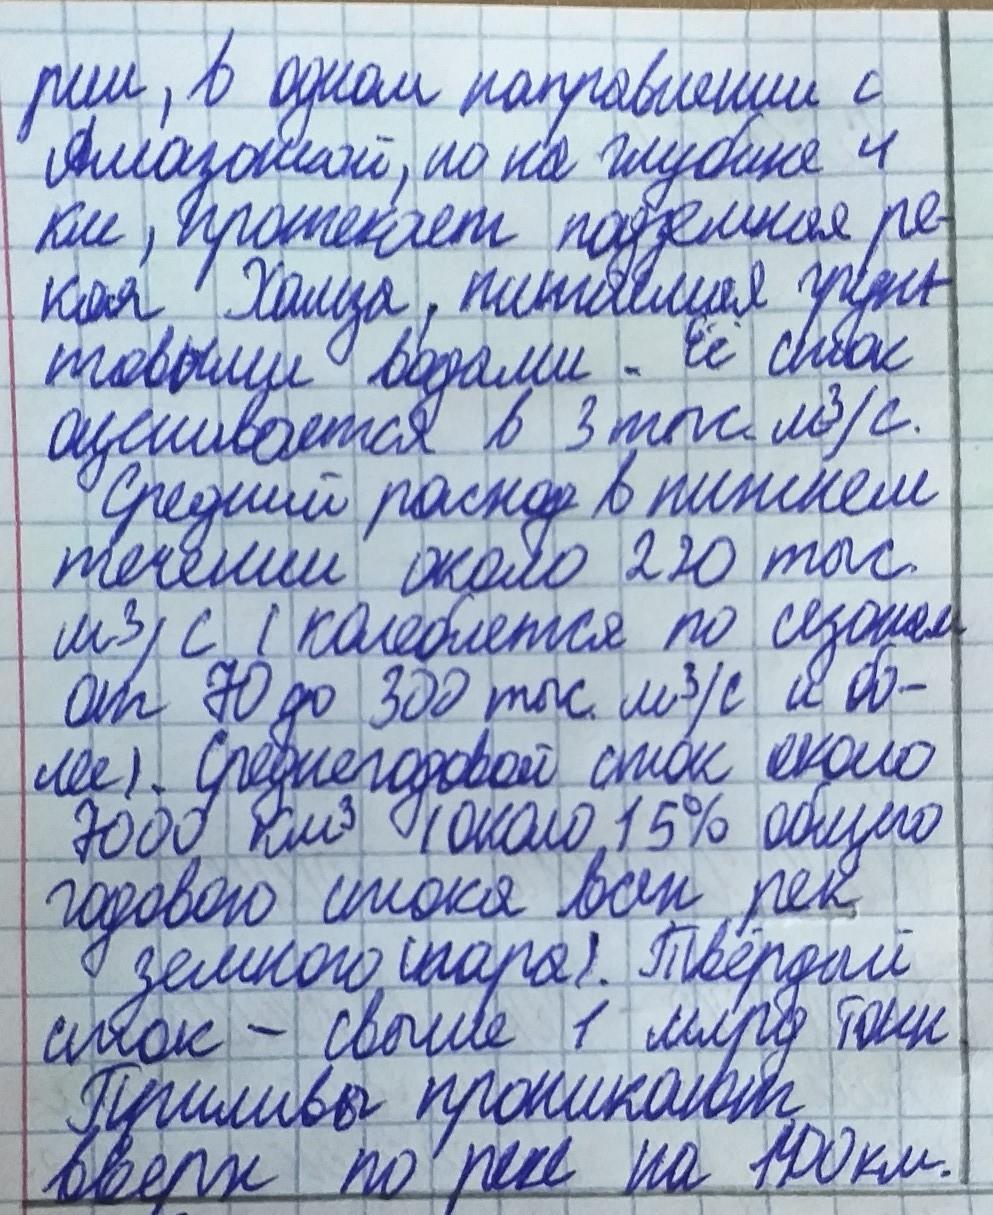 рии, в одном направлении с
Амазонкой, но на глубине 4
км, протекает подземная ре-
кая Хамза, питаемая грунт
товыми водами. Её сток
оценивается в 3 тыс. м³/с.
Средний расход в нижнем
течении около 220 тыс.
м³/с (колеблется по сезонам
от 70 до 300 тыс. м³/с и бо-
лее). Среднегодовой сток около
7000 км³ (около 15% общего
годового стока всех рек
земного шара). Твёрдый
сток - свыше 1 млрд тонн
Приливы проникают
вверх по реке на 1400 км.